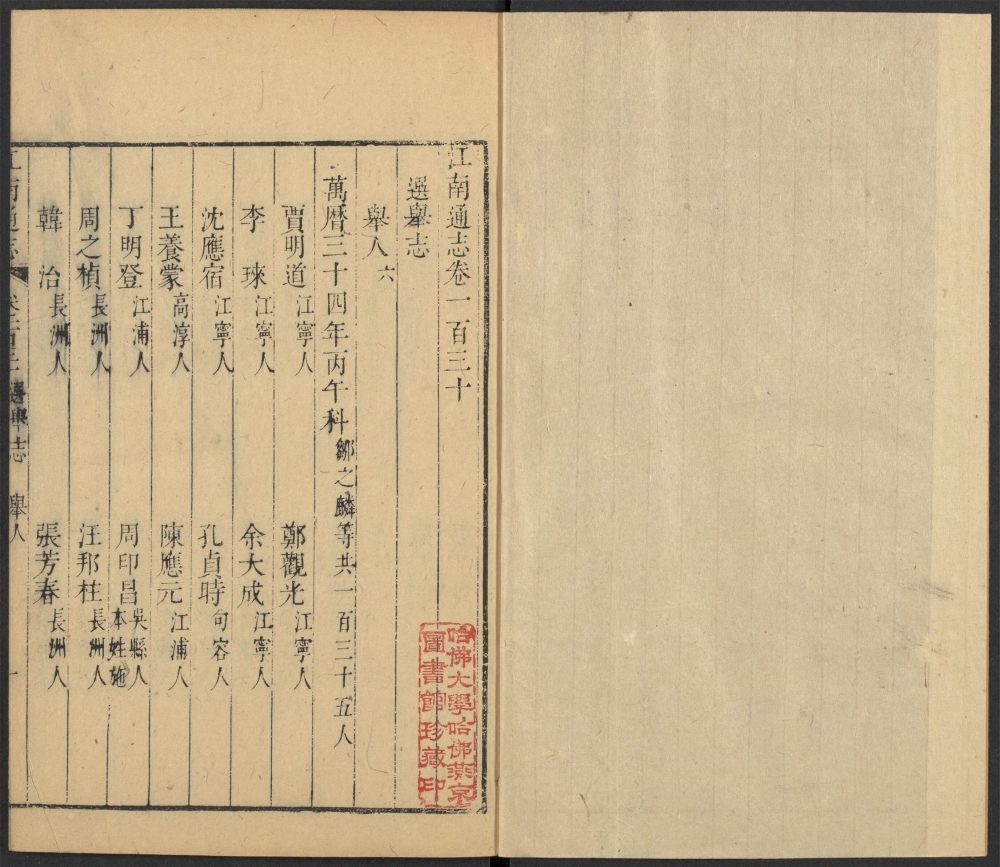 江南通志卷一百三十
選舉志
舉人六
萬曆三十四年丙午科鄒之麟等共一百三十五人
賈明道江寧人 鄭觀光江寧人
李琜江寧人 余大成江寧人
沈應宿江寧人 孔貞時句容人
王養蒙高淳人 陳應元江浦人
丁明登江浦人 周印昌吳縣人本姓施
周之楨長洲人 汪邦柱長洲人
韓治長洲人 張芳春長洲人
江南通志 選舉志 舉人 一
哈佛大學哈佛燕京
圖書館珍藏印